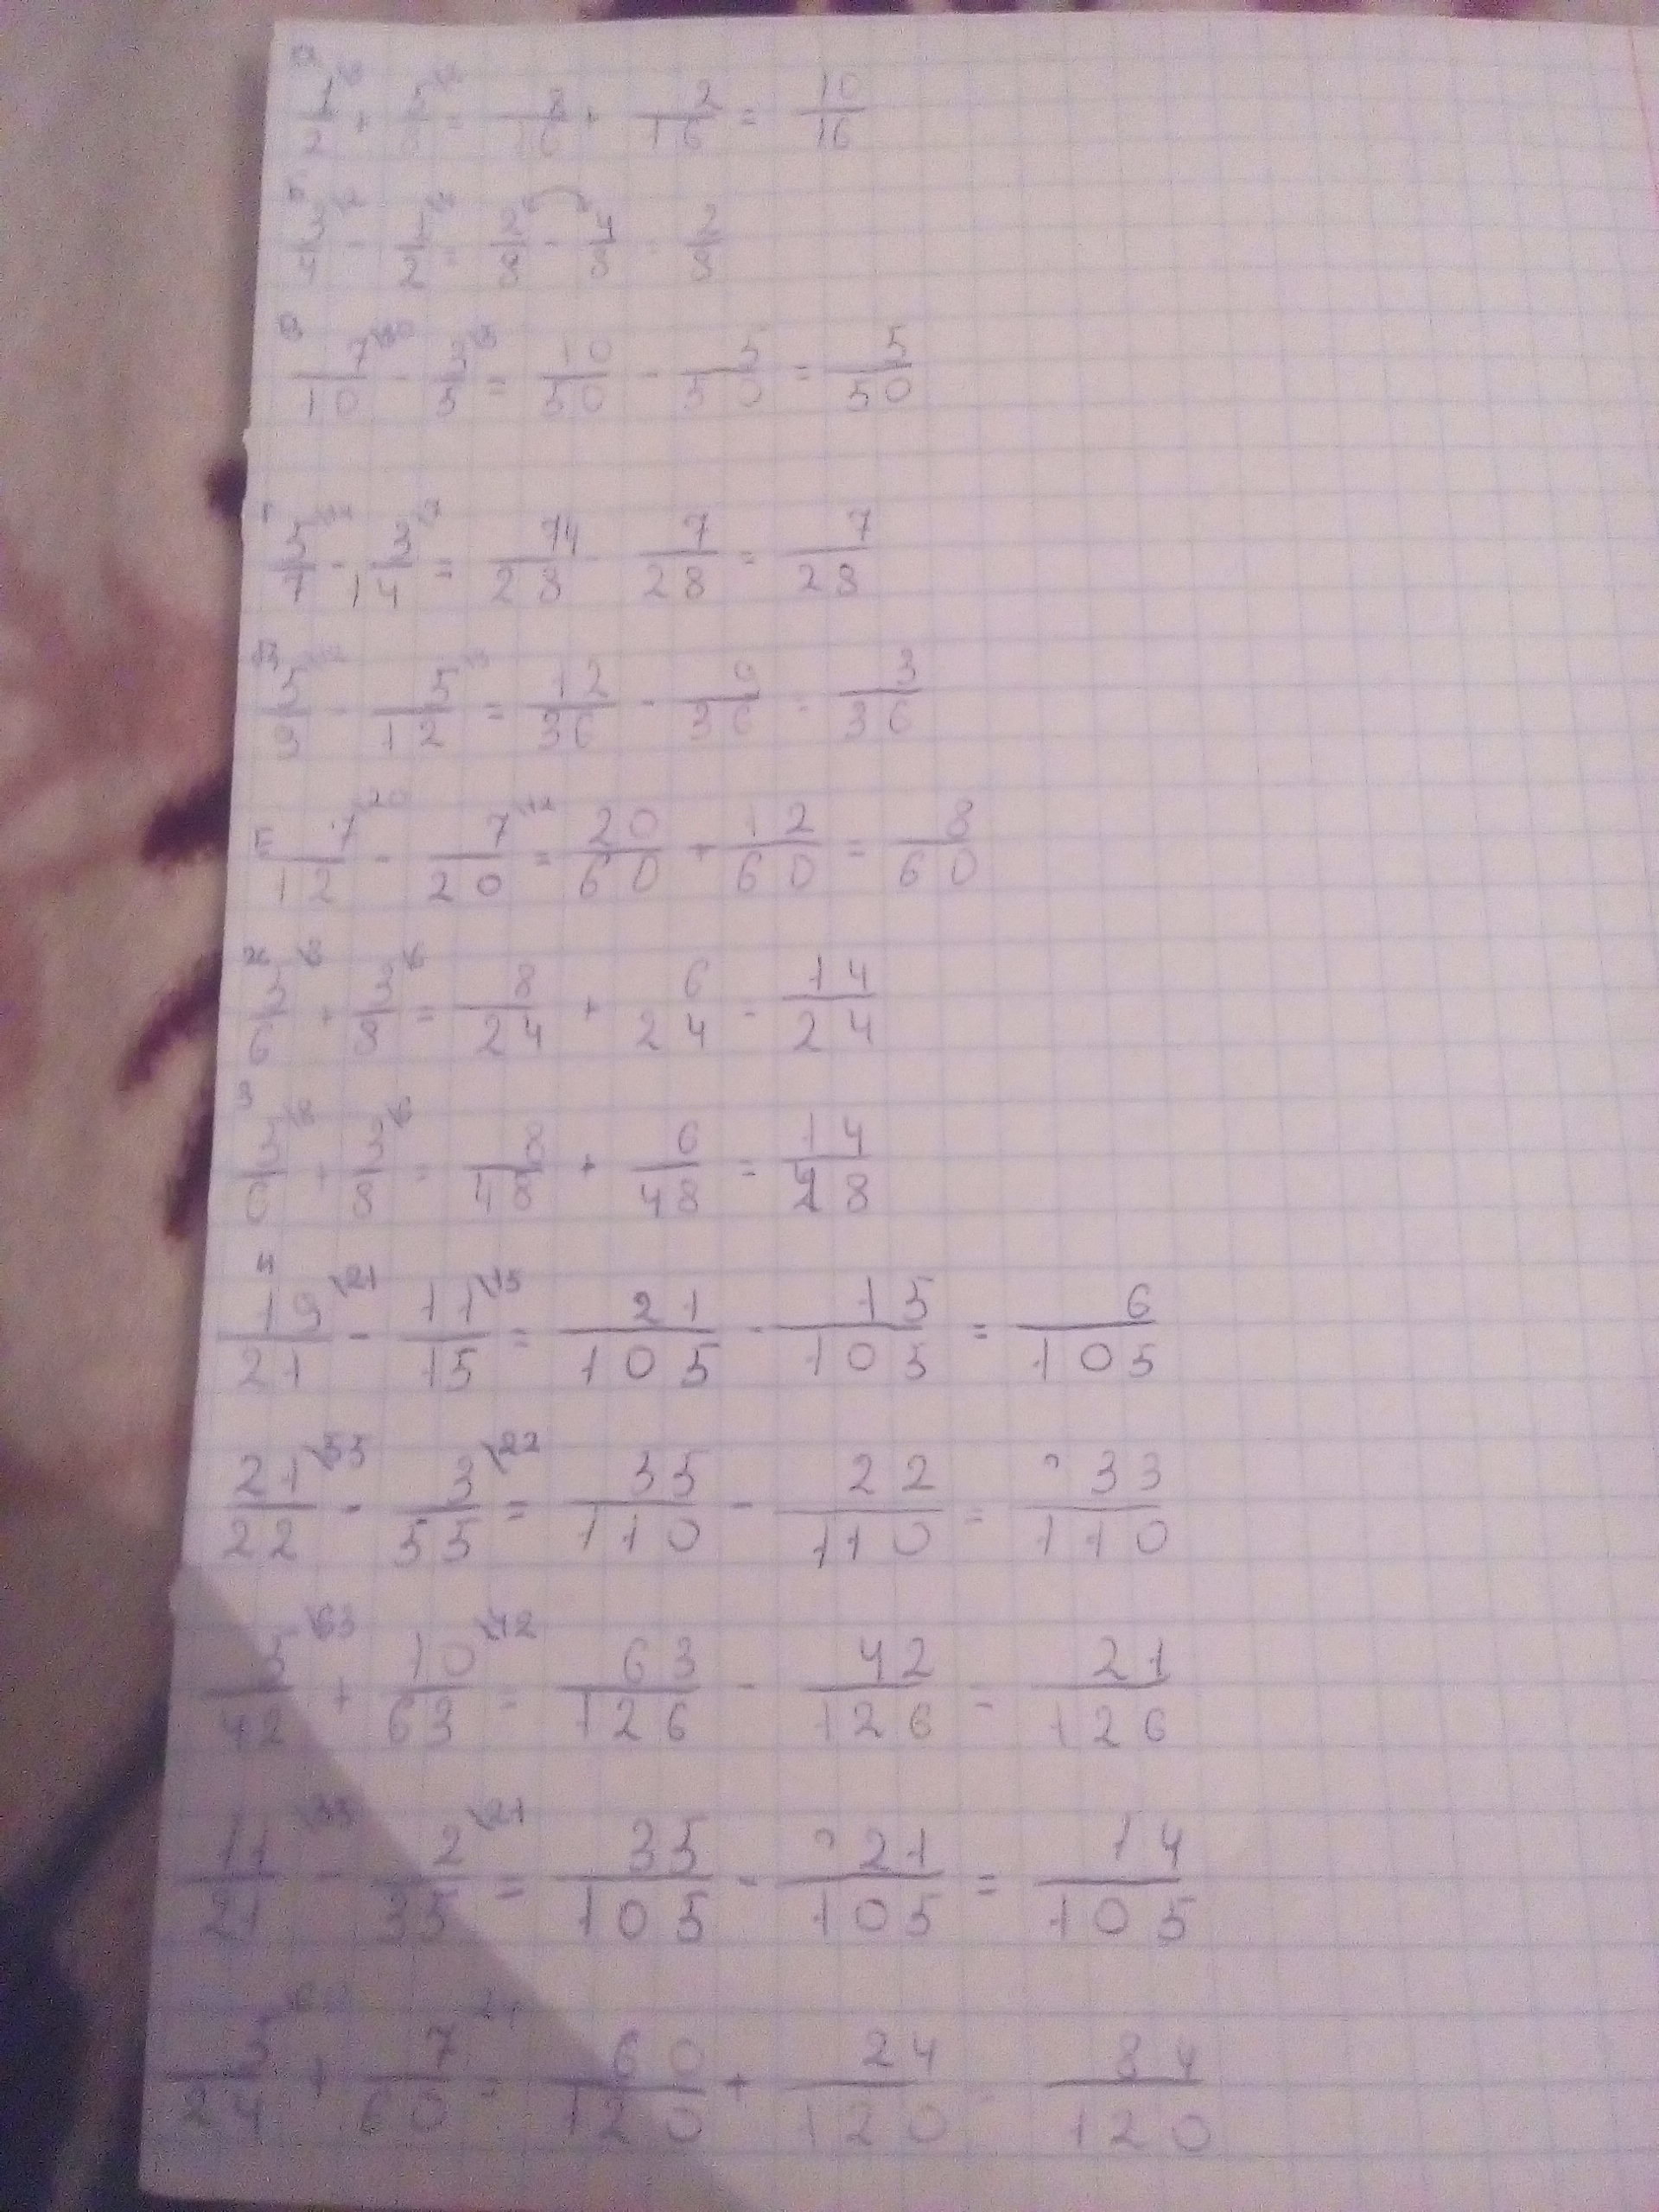 а
1/2 + 5/8 = 8/16 + 2/16 = 10/16
3/4 - 1/2 = 2/8 - 4/8 - 2/8
7/10 - 3/5 = 10/50 - 5/50 = 5/50
г
5/7 - 3/14 = 14/28 7/28 = 7/28
5/9 - 5/12 = 12/36 - 9/36 - 3/36
Е
7\20/12 - 7\12/20 = 20/60 + 12/60 = 8/60
ж
5\8/6 + 3\6/8 = 8/24 + 6/24 - 14/24
з
+ 3\6/8 = 8/48 + 6/48 = 14/48
и
19\21/21 - 11\15/15 = 21/105 - 15/105 = 6/105
21\55/22 - 3\22/55 = 35/110 - 22/110 = 33/110
5\63/42 + 10\42/63 = 63/126 - 42/126 = 21/126
11\35/21 - 2\21/35 = 35/105 - 21/105 = 14/105
5/24 + 7/60 = 60/120 + 24/120 - 84/120